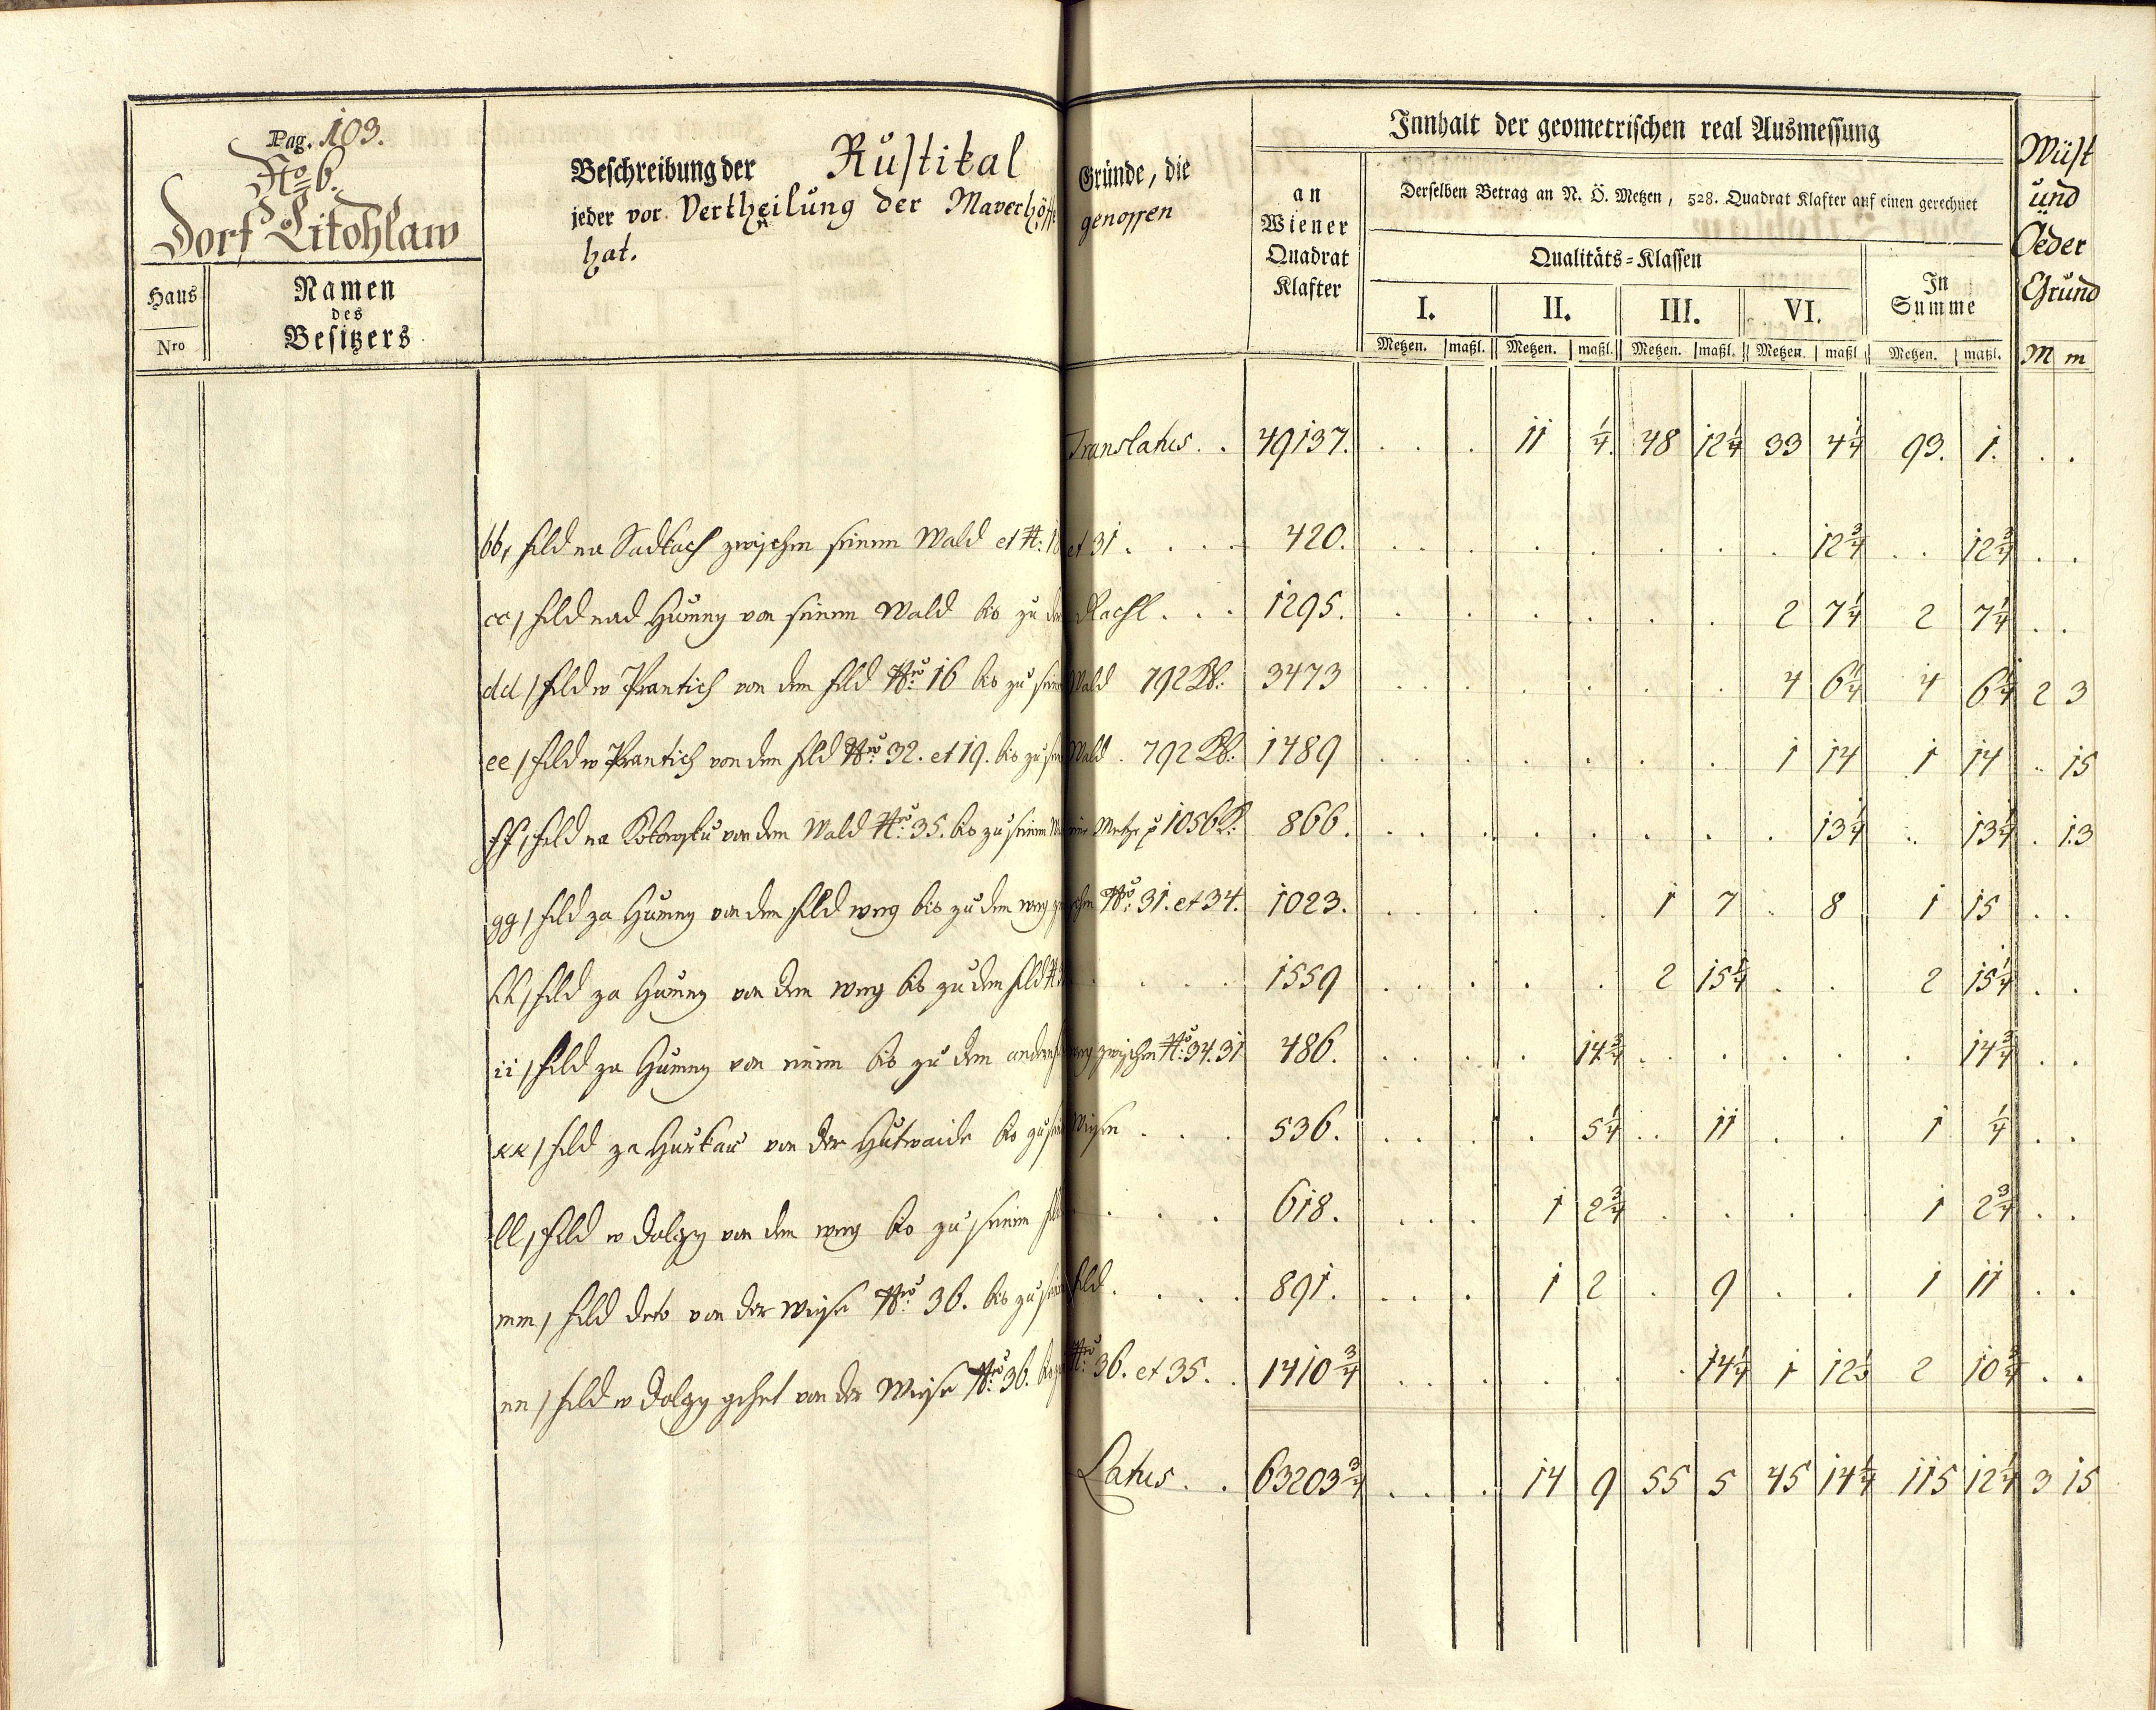 Pag. 103.
No 6.
Dorf Litohlaw
Haus
Nro
Namen
des
Besitzers
Beschreibung der Rustikal Gründe, die
jeder vor Vertheilung der Mayerhöffe genossen
hat.
Innhalt der geometrischen real Ausmessung
an
Wiener
Quadrat
Klafter
Derselben Betrag an N. Ö. Metzen, 528. Quadrat Klafter auf einen gerechnet
Qualitäts-Klassen
I. II. III. VI.
In
Summe
Metzen. maßl. Metzen. maßl. Metzen. maßl. Metzen. maßl Metzen. maßl.
Wüst
und
Öeder
Grund
M m
Translatus . . 49137. . . . 11 1/4. 48 12 1/4 33 4 1/4 93. 1. . .
bb, Feld na Sadkach zwischen seinem Wald et N: 18 et 31 . . . . 420. 12 3/4 12 3/4 . .
cc, Feld nad Humny von seinem Wald bis zu der . . . 1295. 2 7 1/4 2 7 1/4 . .
dd, Feld w Prantich von dem Feld Nro 16 bis zu sein Wald 792 Kl. 3473 4 6 1/4 4 6 1/4 2 3
ee, Feld w Prantich von dem Feld Nro 32. et 19. bis zu sein Wald. 792 Kl. 1489 1 14 1 14 . 15
ff, Feld na von dem Wald Nro 35. bis zu seinem 1056 Kl. 866. 13 1/4 13 1/4 . 13
gg, Feld za Humny von dem Feld weg bis zu dem weg zwischen Nro 31. et 34. 1023. 1 7 . 8 1 15 . .
hh, Feld za Humny von dem weg bis zu dem Feld . . . . 1559 2 15 1/4 2 15 1/4 . .
ii, Feld za Humny von einem bis zu dem andern Feldweg zwischen Nro 34. 31 486. 14 3/4 14 3/4 . .
kk, Feld za von der Hutwaide bis zu sein Wiesen . . . 536. 5 1/4 . . 11 1 1/4 . .
ll, Feld w Dolzy von dem weg bis zu seinem Feld . . . . 618. 1 2 3/4 1 2 3/4 . .
mm, Feld deto von der Wiese Nro 36. bis zu sein Feld. . . . . 891. 1 2 . 9 1 11 . .
nn, Feld w Dolzy gehet von der Wiese Nro 36. bis zu Nro 36. et 35. . 1410 3/4 14 1/4 1 12 1/2 2 10 3/4 . .
Latus . . 63203 3/4 . . . 14 9 55 5 45 14 1/4 115 12 1/4 3 15